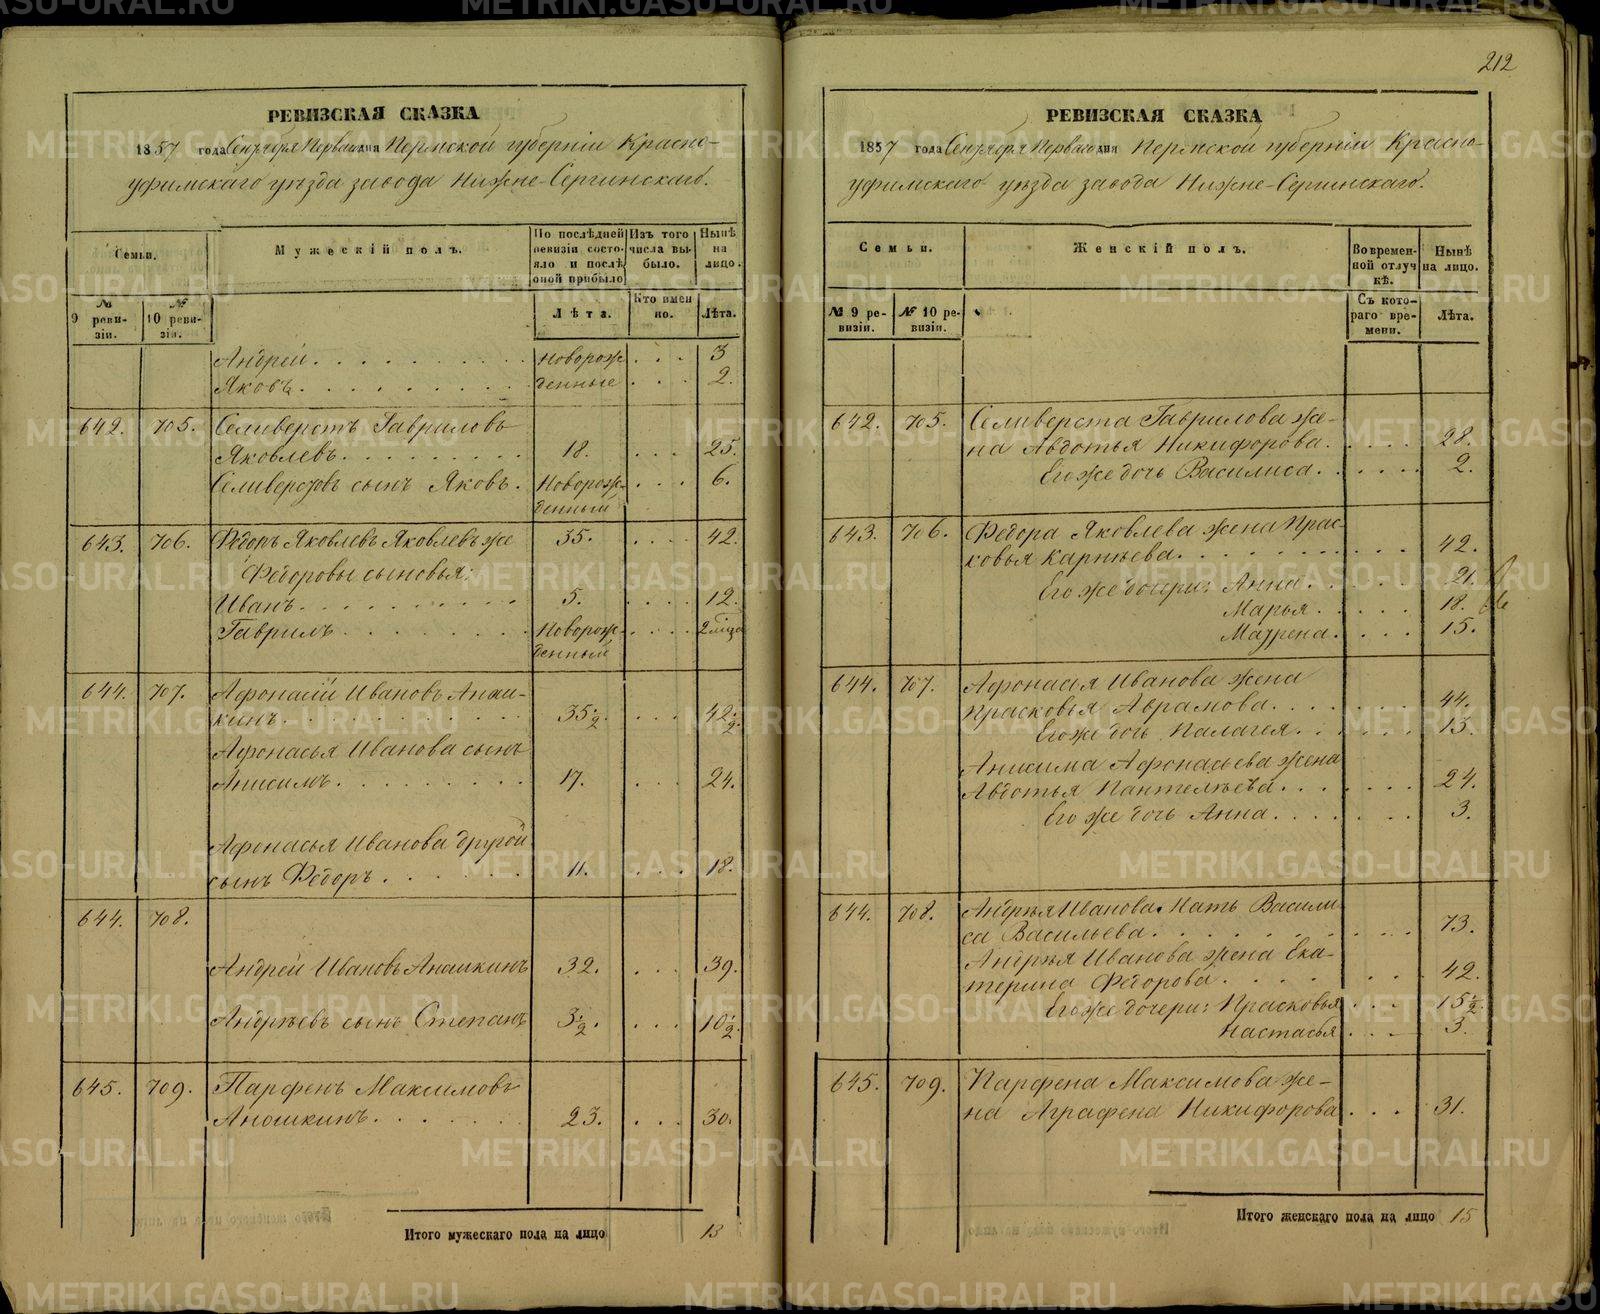 РЕВИЗСКАЯ СКАЗКА
1857 года Сентября Перваго дня Пермской губерніи Красно-
уфимскаго уѣзда завода Нижне-Сергинскаго.
Семьи.
Мужескій полъ.
По послѣдней ревизіи состояло и послѣ оной прибыло
Изъ того числа выбыло.
Нынѣ на лицо.
№ 9 ревизіи.
№ 10 ревизіи.
Лѣта.
Кто имено.
Лѣта.
Андрей. новорож- 3
Яковъ. денные 2.
642. 705. Селиверстъ Гавриловъ
Яковлевъ. 18. 25.
Селиверстовъ сынъ Яковъ. Новорож- 6.
денный
643. 706. Федоръ Яковлевъ Яковлевъ же 35. 42.
Федоровы сыновья:
Иванъ. 5. 12.
Гаврилъ. Новорож- 2
денный
644. 707. Афонасій Ивановъ
кинъ. 35½. 42½.
Афонасья Иванова сынъ
Анисимъ. 17. 24.
Афонасья Иванова другой
сынъ Федоръ. 11. 18.
644. 708.
Андрей Ивановъ Аношкинъ 32. 39.
Андрѣевъ сынъ Степанъ 3½. 10½.
645. 709. Парфенъ Максимовъ
Аношкинъ. 23. 30.
Итого мужескаго пола на лицо 13
212
РЕВИЗСКАЯ СКАЗКА
1857 года Сентября Перваго дня Пермской губерніи Красно-
уфимскаго уѣзда завода Нижне-Сергинскаго.
Семьи.
Женскій полъ.
Во временной отлучкѣ.
Нынѣ на лицо.
№ 9 ревизіи.
№ 10 ревизіи.
Съ котораго времени.
Лѣта.
642. 705. Селиверста Гаврилова же-
на Авдотья Никифорова. 28.
Его же дочь Василиса. 2.
643. 706. Федора Яковлева жена Прас-
ковья Карпѣева. 42.
Его же дочери: Анна. 21.
Марья. 18.
Маурена. 15.
644. 707. Афонасья Иванова жена
Прасковья Аврамова. 44.
Его же дочь Палагея. 13.
Анисима Афонасьева жена
Авдотья Пантелѣева. 24.
Его же дочь Анна. 3.
644. 708. Андрѣя Иванова Мать Васили-
са Васильева. 73.
Андрѣя Иванова жена Ека-
терина Федорова. 42.
Его же дочери: Прасковья 15½.
Настасья 3.
645. 709. Парфена Максимова же-
на Аграфена Никифорова 31.
Итого женскаго пола на лицо 15
METRIKI.GASO-URAL.RU